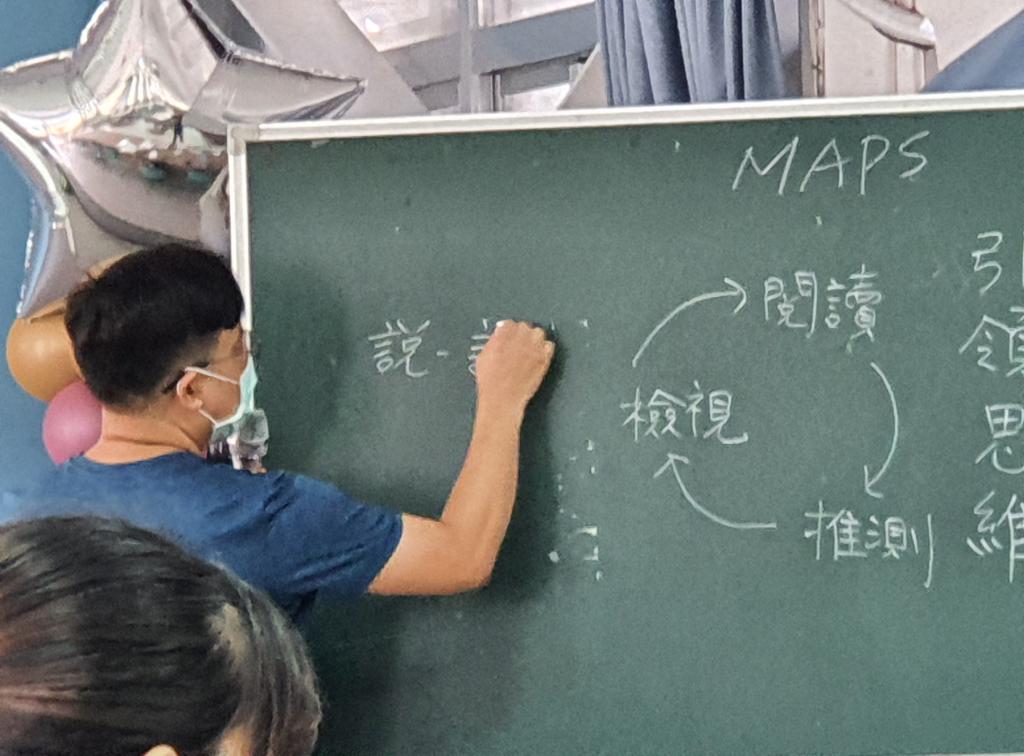 MAPS
閱讀
說-
檢視
推測
引
領
思
維